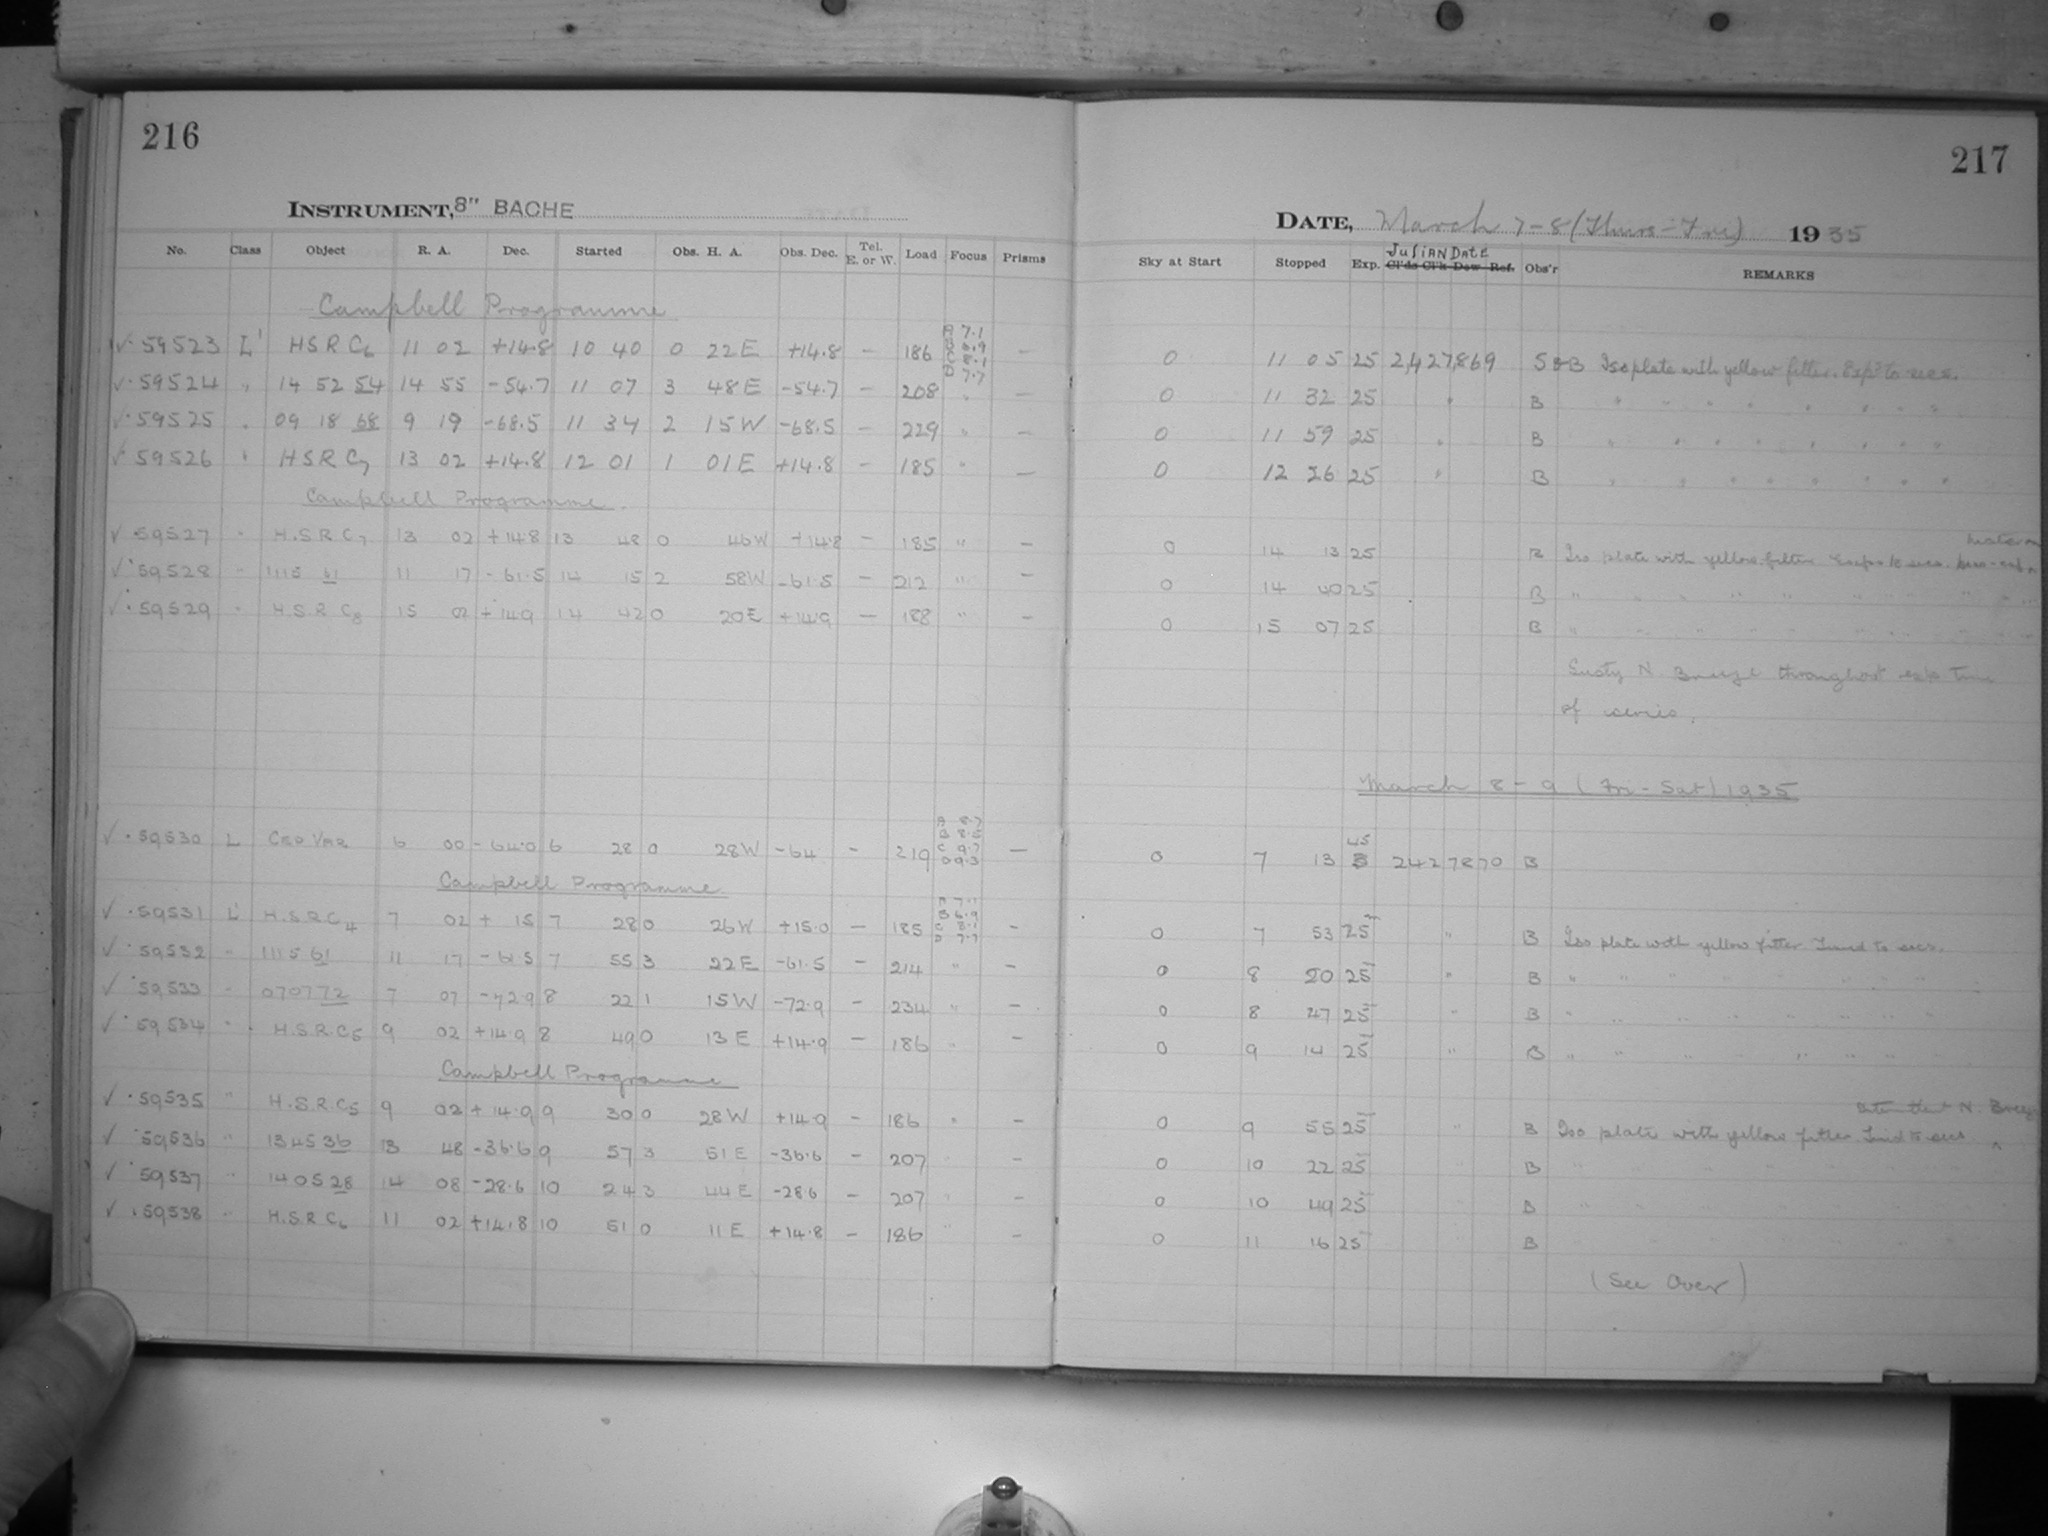 216
217
INSTRUMENT, 8" BACHE
DATE, March 7-8 (Thurs-Fri) 1935
No. Class Object R. A. Dec. Started Obs. H. A. Obs. Dec. Tel. E. or W. Load Focus Prisms Sky at Start Stopped Exp. JULIAN DATE Cl'ds Cl'k Dew Ref. Obs'r REMARKS
Campbell Programme
✓ 59523 L' HSRC6 11 02 +14.8 10 40 0 22E +14.8 – 186 A 7.1 B 6.9 C 8.1 D 7.7 – 0 11 05 25 2,427,869 S&B Iso plate with yellow filter. Exp? to secs.
✓ 59524 " 14 52 54 14 55 -54.7 11 07 3 48E -54.7 – 208 " – 0 11 32 25 " B " " " " " " " "
✓ 59525 " 09 18 68 9 19 -68.5 11 34 2 15W -68.5 – 229 " – 0 11 59 25 " B " " " " " " " "
✓ 59526 " HSRC7 13 02 +14.8 12 01 1 01E +14.8 – 185 " – 0 12 26 25 " B " " " " " " " "
Campbell Programme.
✓ 59527 " H.S.R.C7 13 02 +14.8 13 48 0 46W +14.8 – 185 " – 0 14 13 25 B Iso plate with yellow filter Expo to secs.
✓ 59528 " 1115 61 11 17 -61.5 14 15 2 58W -61.5 – 212 " – 0 14 40 25 B " " " " " " "
✓ 59529 " H.S.R.C8 15 02 +14.9 14 42 0 20E +14.9 – 188 " – 0 15 07 25 B " " " " " " "
Gusty N. Breeze throughout exp time
of series.
March 8-9 (Fri-Sat) 1935
✓ 59530 L CEP VAR 6 00 -64.0 6 28 0 28W -64 – 219 A 8.7 B 8.5 C 9.7 D 9.3 – 0 7 13 45 2427870 B
Campbell Programme.
✓ 59531 L' H.S.R.C4 7 02 + 15 7 28 0 26W +15.0 – 185 A 7.1 B 6.9 C 8.1 D 7.7 – 0 7 53 25 " B Iso plate with yellow filter Timed to secs.
✓ 59532 " 1115 61 11 17 -61.5 7 55 3 22E -61.5 – 214 " – 0 8 20 25 " B " " " " " " "
✓ 59533 " 070772 7 07 -72.9 8 22 1 15W -72.9 – 234 " – 0 8 47 25 " B " " " " " " "
✓ 59534 " H.S.R.C5 9 02 +14.9 8 49 0 13E +14.9 – 186 " – 0 9 14 25 " B " " " " " " "
Campbell Programme
✓ 59535 " H.S.R.C5 9 02 +14.9 9 30 0 28W +14.9 – 186 " – 0 9 55 25 " B Iso plate with yellow filter Timed to secs N. Breeze
✓ 59536 " 134536 13 48 -36.6 9 57 3 51E -36.6 – 207 " – 0 10 22 25 " B
✓ 59537 " 140528 14 08 -28.6 10 24 3 44E -28.6 – 207 " – 0 10 49 25 " B
✓ 59538 " H.S.R.C6 11 02 +14.8 10 51 0 11E +14.8 – 186 " – 0 11 16 25 " B
(See Over)